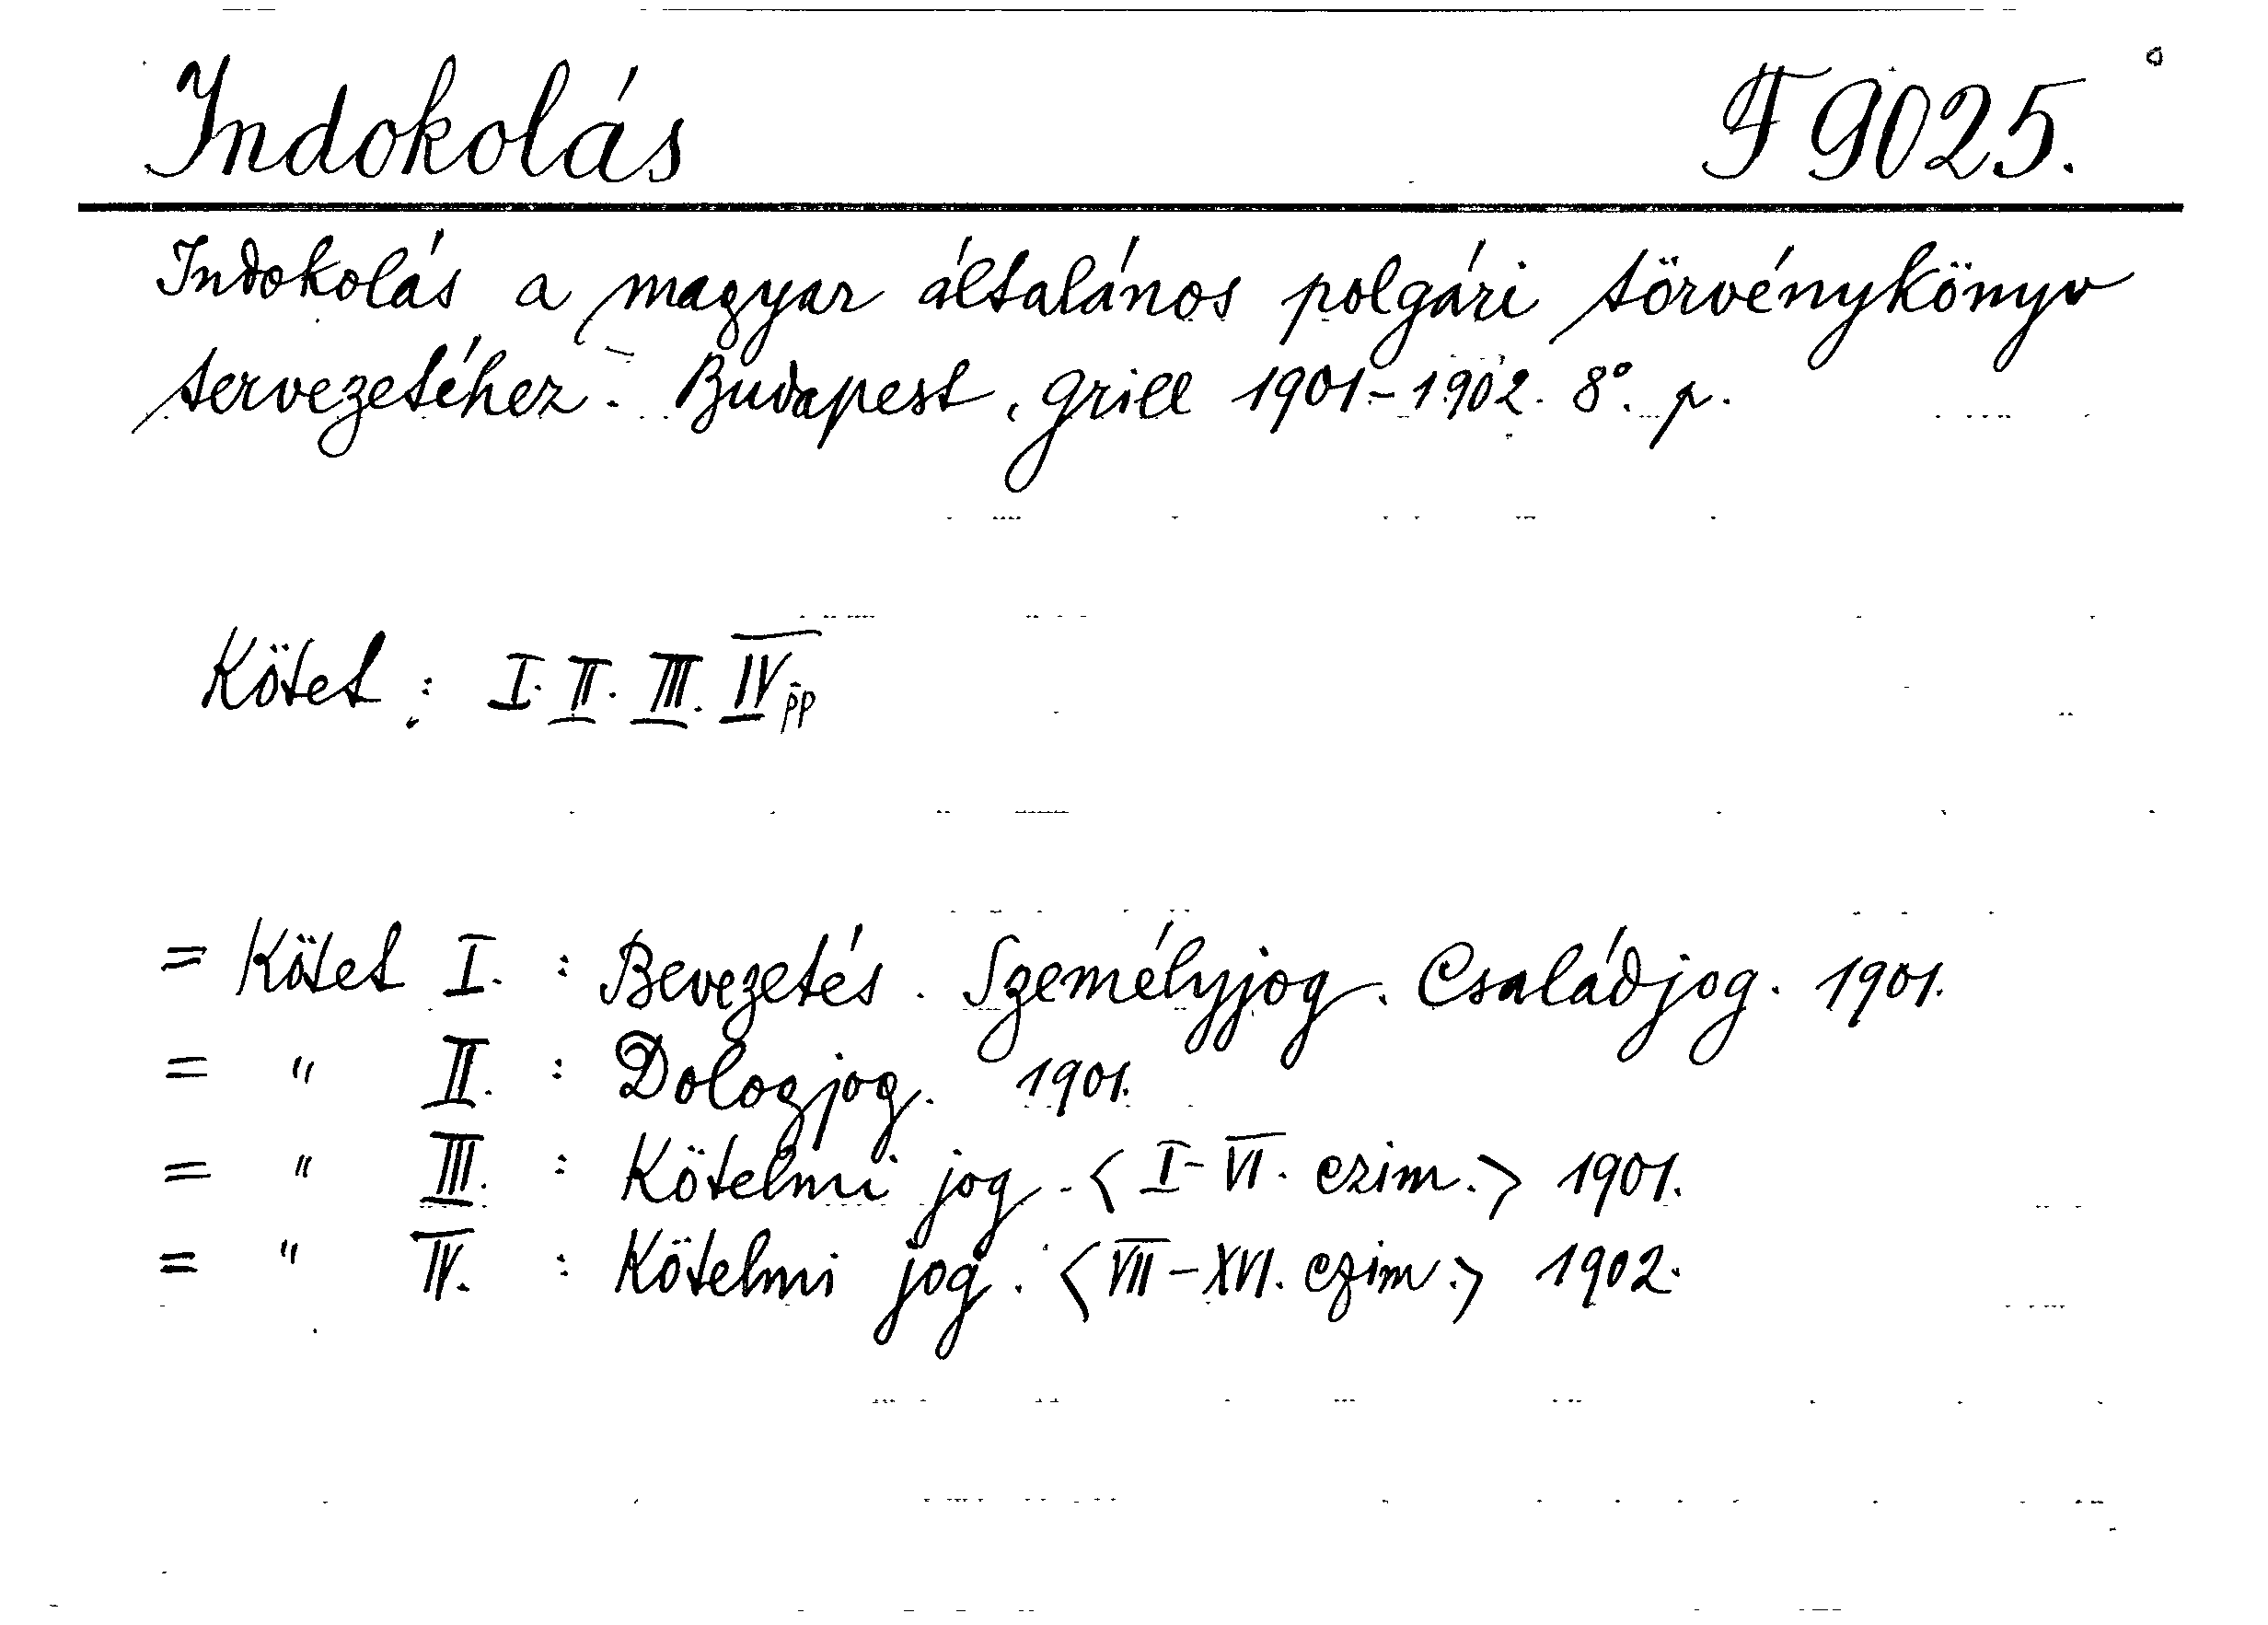 Indokolás F 9025.
Indokolás a magyar általános polgári törvénykönyv
tervezetéhez. Budapest, Grill 1901-1902. 8°. p.
Kötet: I. II. III. IV pp
= Kötet I. : Bevezetés. Személyjog. Családjog. 1901.
= " II. : Dologjog. 1901.
= " III. : Kötelmi jog. <I-VI. czim.> 1901.
= " IV. : Kötelmi jog. <VII-XVI. czim.> 1902.